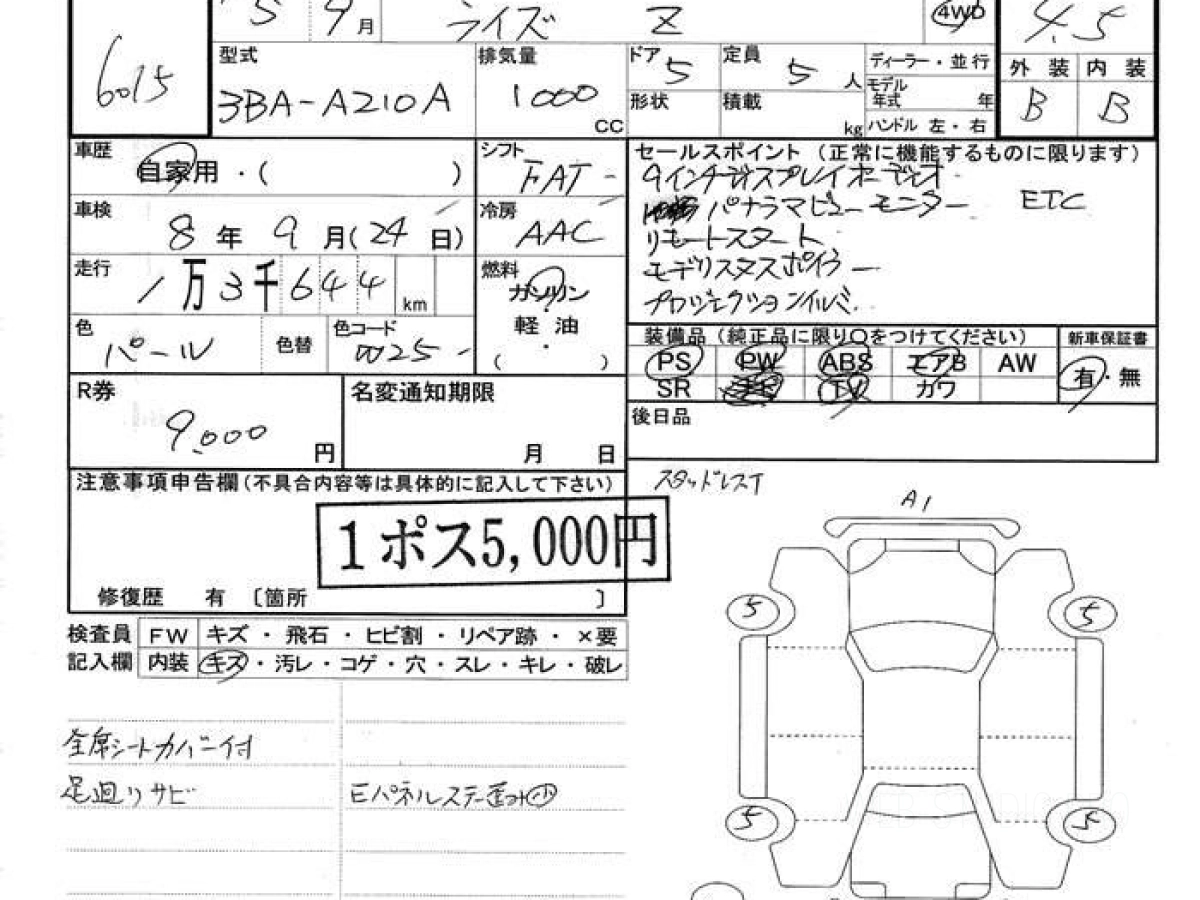 5 9月 ライズ Z 4WD 4.5
6015
型式 3BA-A210A
排気量 1000 CC
ドア 5 定員 5人
形状 積載 kg
ディーラー・並行
モデル年式 年
ハンドル 左・右
外装 内装
B B
車歴 自家用・( )
シフト FAT
車検 8年9月(24日)
冷房 AAC
走行 1万3千644 km
燃料 ガソリン・軽油・( )
色 パール 色替 色コード W25
セールスポイント (正常に機能するものに限ります)
9インチディスプレイオーディオ
パナラマビューモニター ETC
リモートスタート
モデリスタスポイラー
プロジェクションイルミ.
装備品(純正品に限り○をつけてください) 新車保証書
PS PW ABS エアB AW
SR ナビ TV カワ 有・無
R券 9,000円
名変通知期限 月 日
後日品
注意事項申告欄(不具合内容等は具体的に記入して下さい)
スタッドレス
1ポス5,000円
修復歴 有 〔箇所 〕
検査員 FW キズ・飛石・ヒビ割・リペア跡・×要
記入欄 内装 キズ・汚レ・コゲ・穴・スレ・キレ・破レ
全席シートカバー付
足廻りサビ Eパネルステー歪み小
A1
5 5
5 5